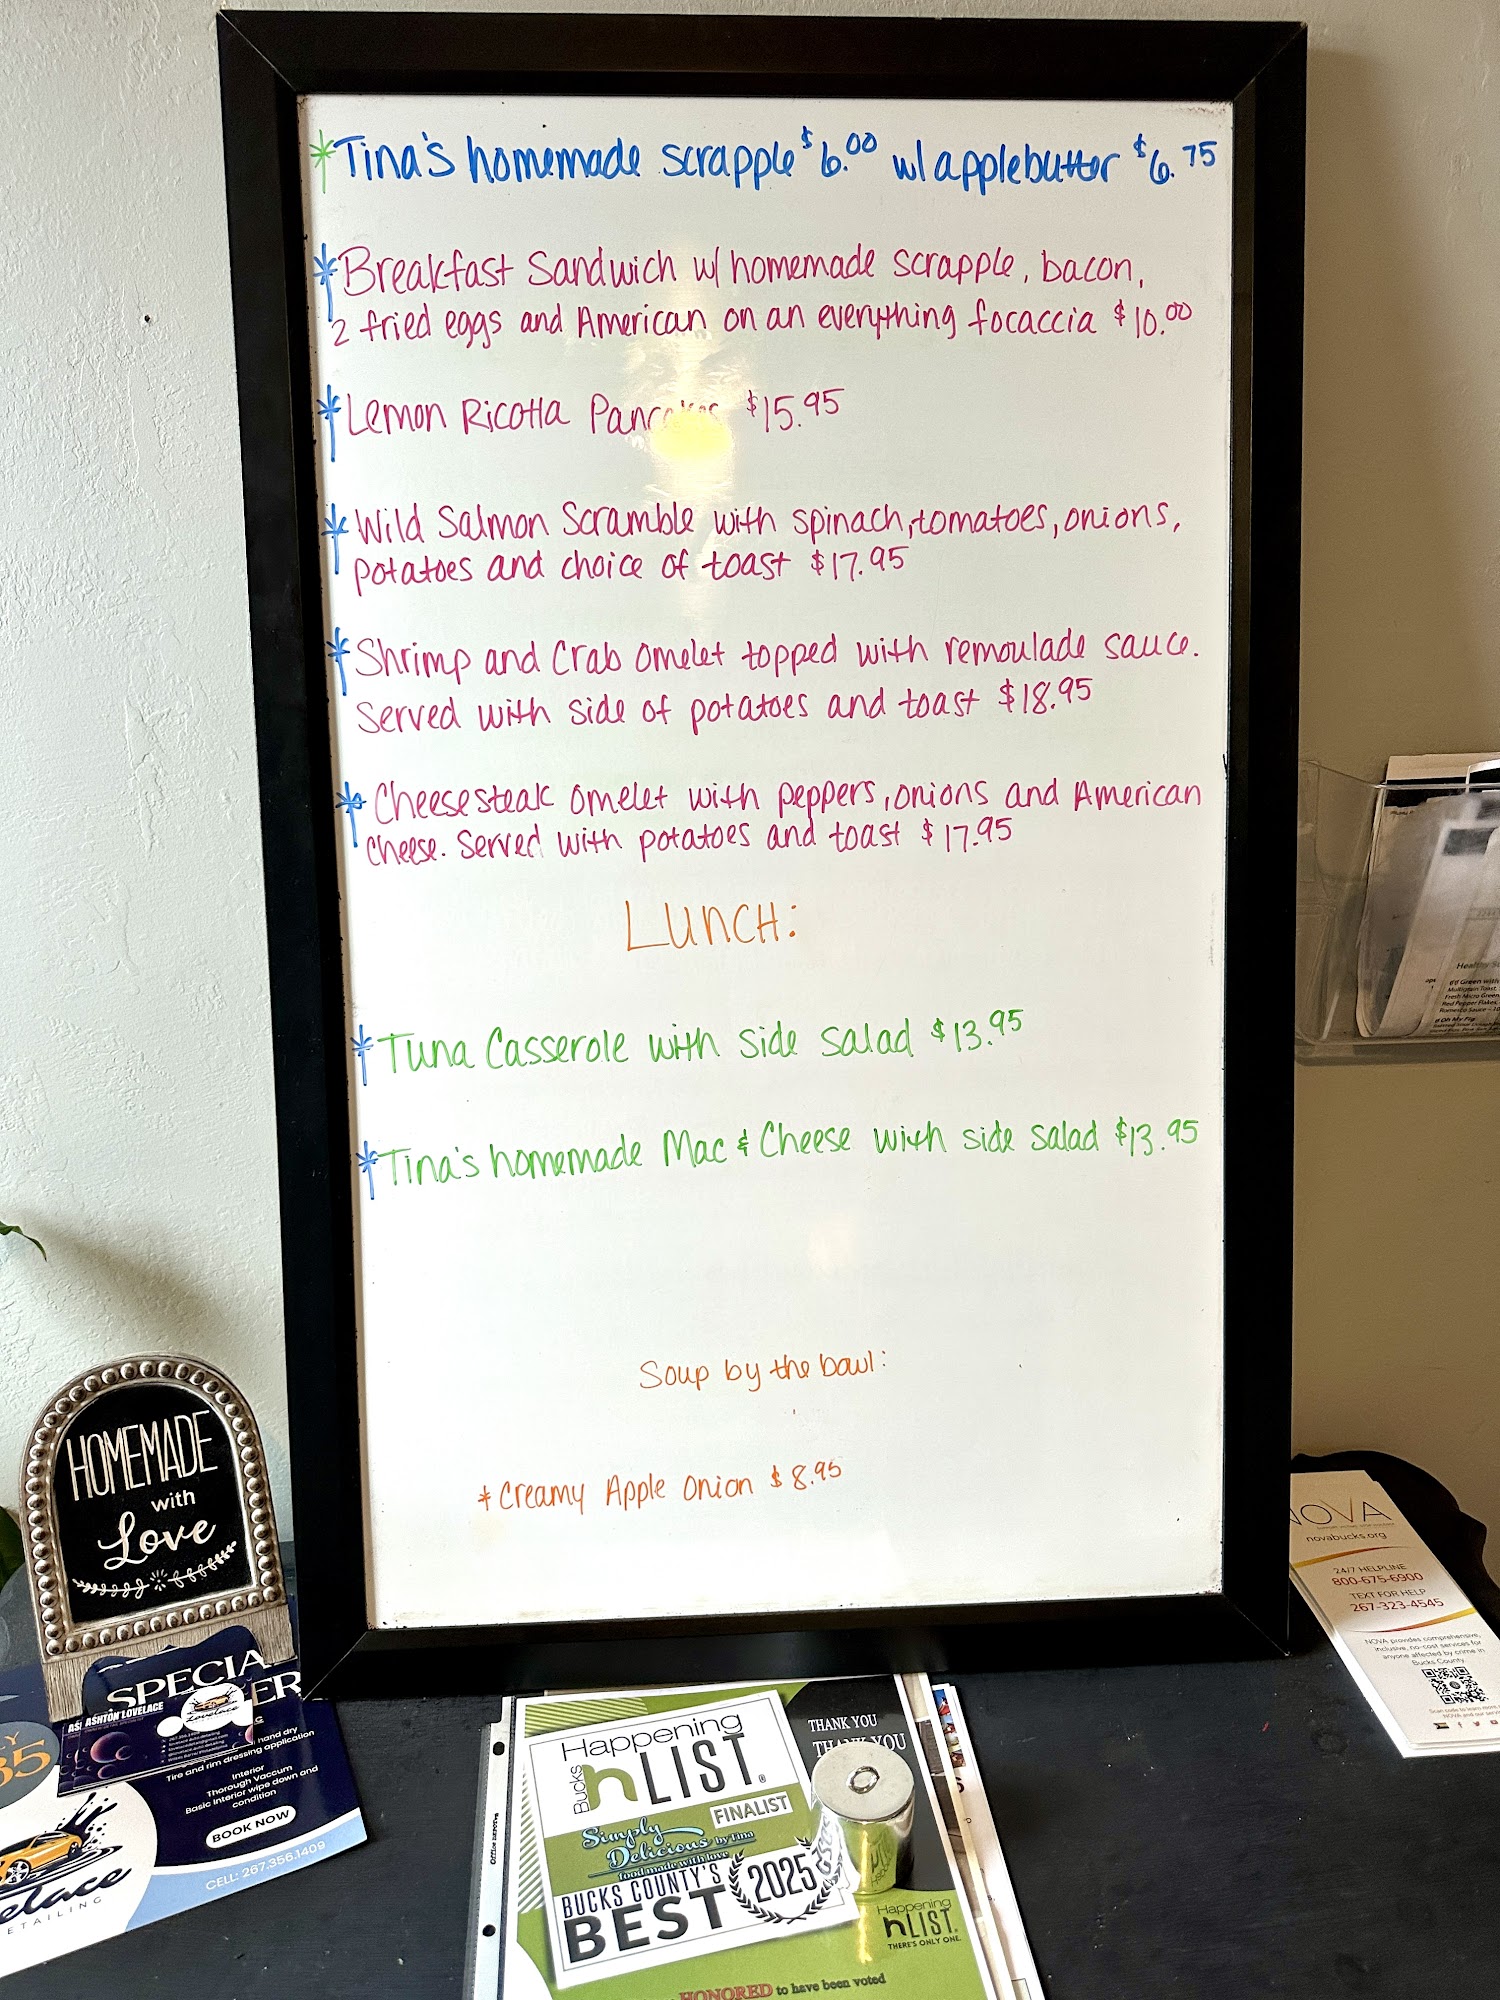 *Tina's homemade scrapple $6.00 w/ applebutter $6.75
*Breakfast Sandwich w/ homemade scrapple, bacon,
2 fried eggs and American on an everything focaccia $10.00
*Lemon Ricotta Pancakes $15.95
*Wild Salmon Scramble with spinach, tomatoes, onions,
potatoes and choice of toast $17.95
*Shrimp and Crab omelet topped with remoulade sauce.
Served with side of potatoes and toast $18.95
*Cheesesteak omelet with peppers, onions and American
cheese. Served with potatoes and toast $17.95
LUNCH:
*Tuna Casserole with side salad $13.95
*Tina's homemade Mac & Cheese with side salad $13.95
Soup by the bowl:
*Creamy Apple Onion $8.95
HOMEMADE
with
Love
SPECIA
ER
ASHTON LOVELACE
hand dry
Tire and rim dressing application
Interior
Thorough Vaccum
Basic Interior wipe down and
condition
BOOK NOW
CELL: 267.356.1409
ETAILING
Bucks
Happening
nLIST.®
FINALIST
Simply
Delicious by Tina
food made with love
BUCKS COUNTY'S
BEST
2025
THANK YOU
THANK YOU
Happening
nLIST.
THERE'S ONLY ONE.
HONORED to have been voted
NOVA
novabucks.org
24/7 HELPLINE
800-675-6900
TEXT FOR HELP
267-323-4545
NOVA provides comprehensive,
inclusive, no-cost services for
anyone affected by crime in
Bucks County.
Multigrain Toast,
Fresh Micro Green
Red Pepper Flakes,